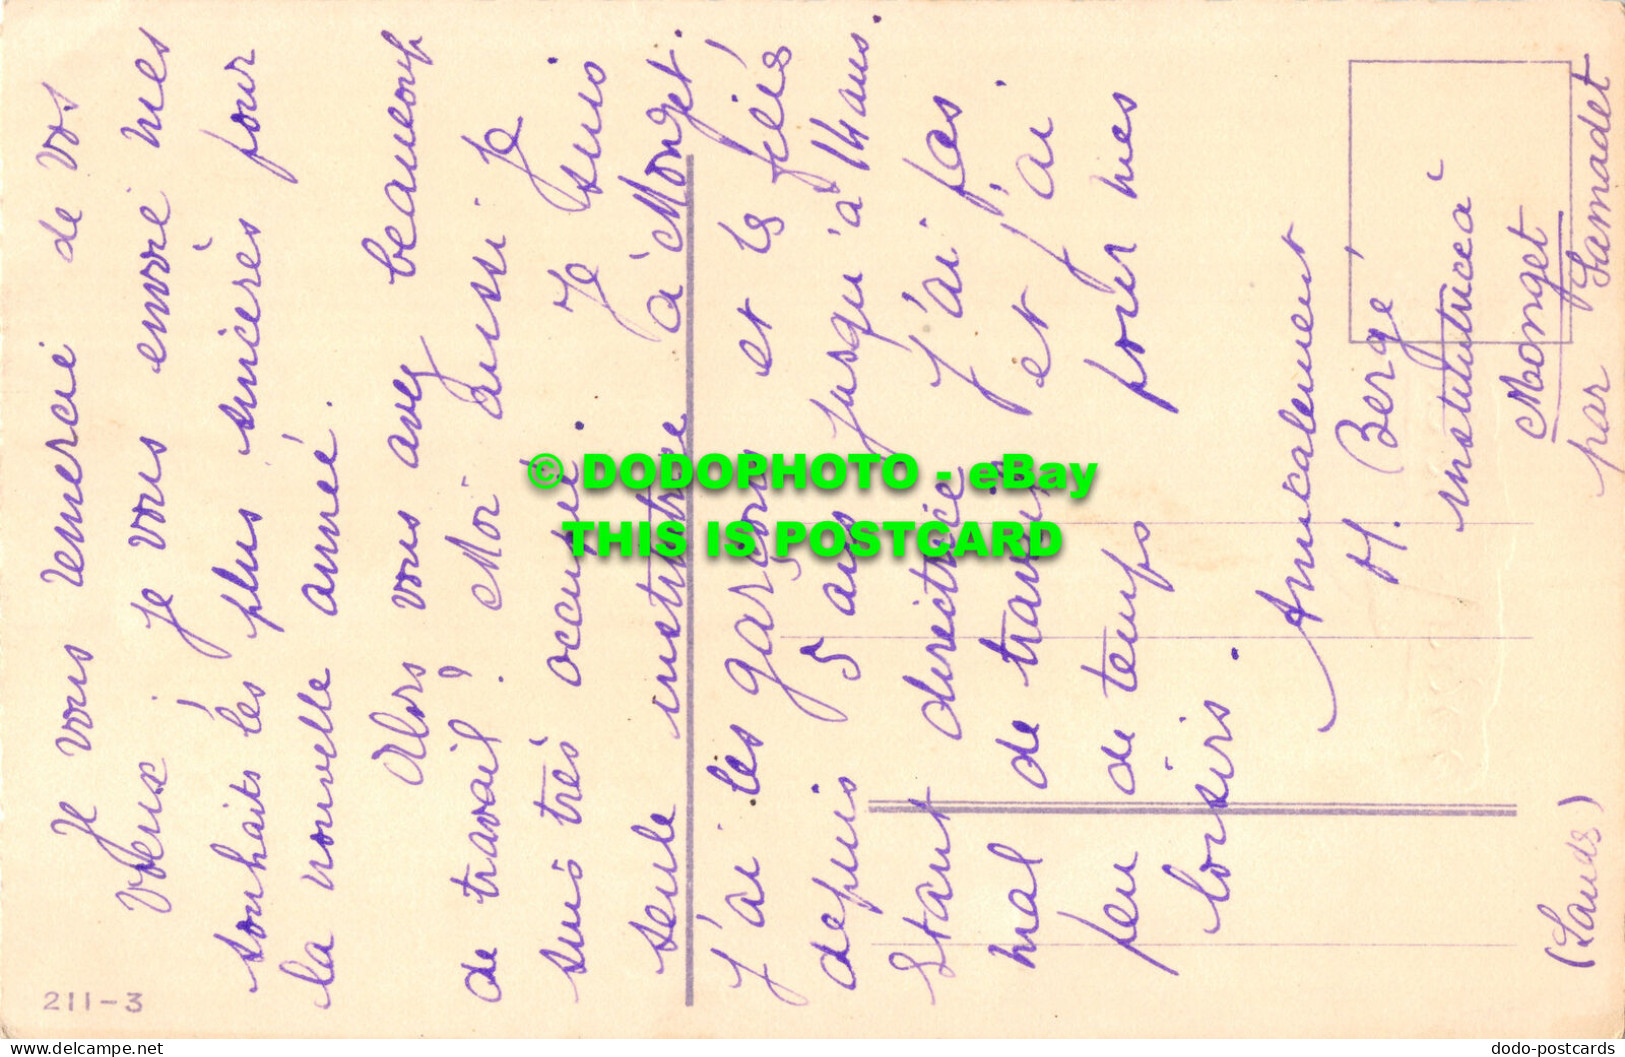 Je vous remercie de vos
vœux. Je vous envoie mes
souhaits les plus sincères pour
la nouvelle année.
Alors vous avez beaucoup
de travail ? Moi aussi. Je
suis très occupé. Je suis
seule institutrice à Monget.
J'ai les garçons et les filles
depuis 5 ans jusqu'à 14 ans.
Etant directrice j'ai pas
mal de travail et j'ai
peu de temps pour mes
loisirs.
Amicalement
H. Bergé
institutrice à
Monget
par Samadet
(Landes)
211-3
© DODOPHOTO - eBay
THIS IS POSTCARD
www.delcampe.net
dodo-postcards